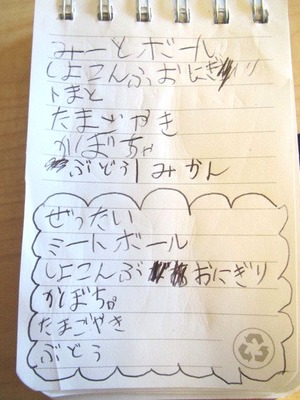 みーとボール
しよこんぶおにぎり
トまと
たまごやき
かぼちゃ
ぶどう｜みかん
ぜったい
ミートボール
しよこんぶおにぎり
かぼちゃ
たまごやき
ぶどう